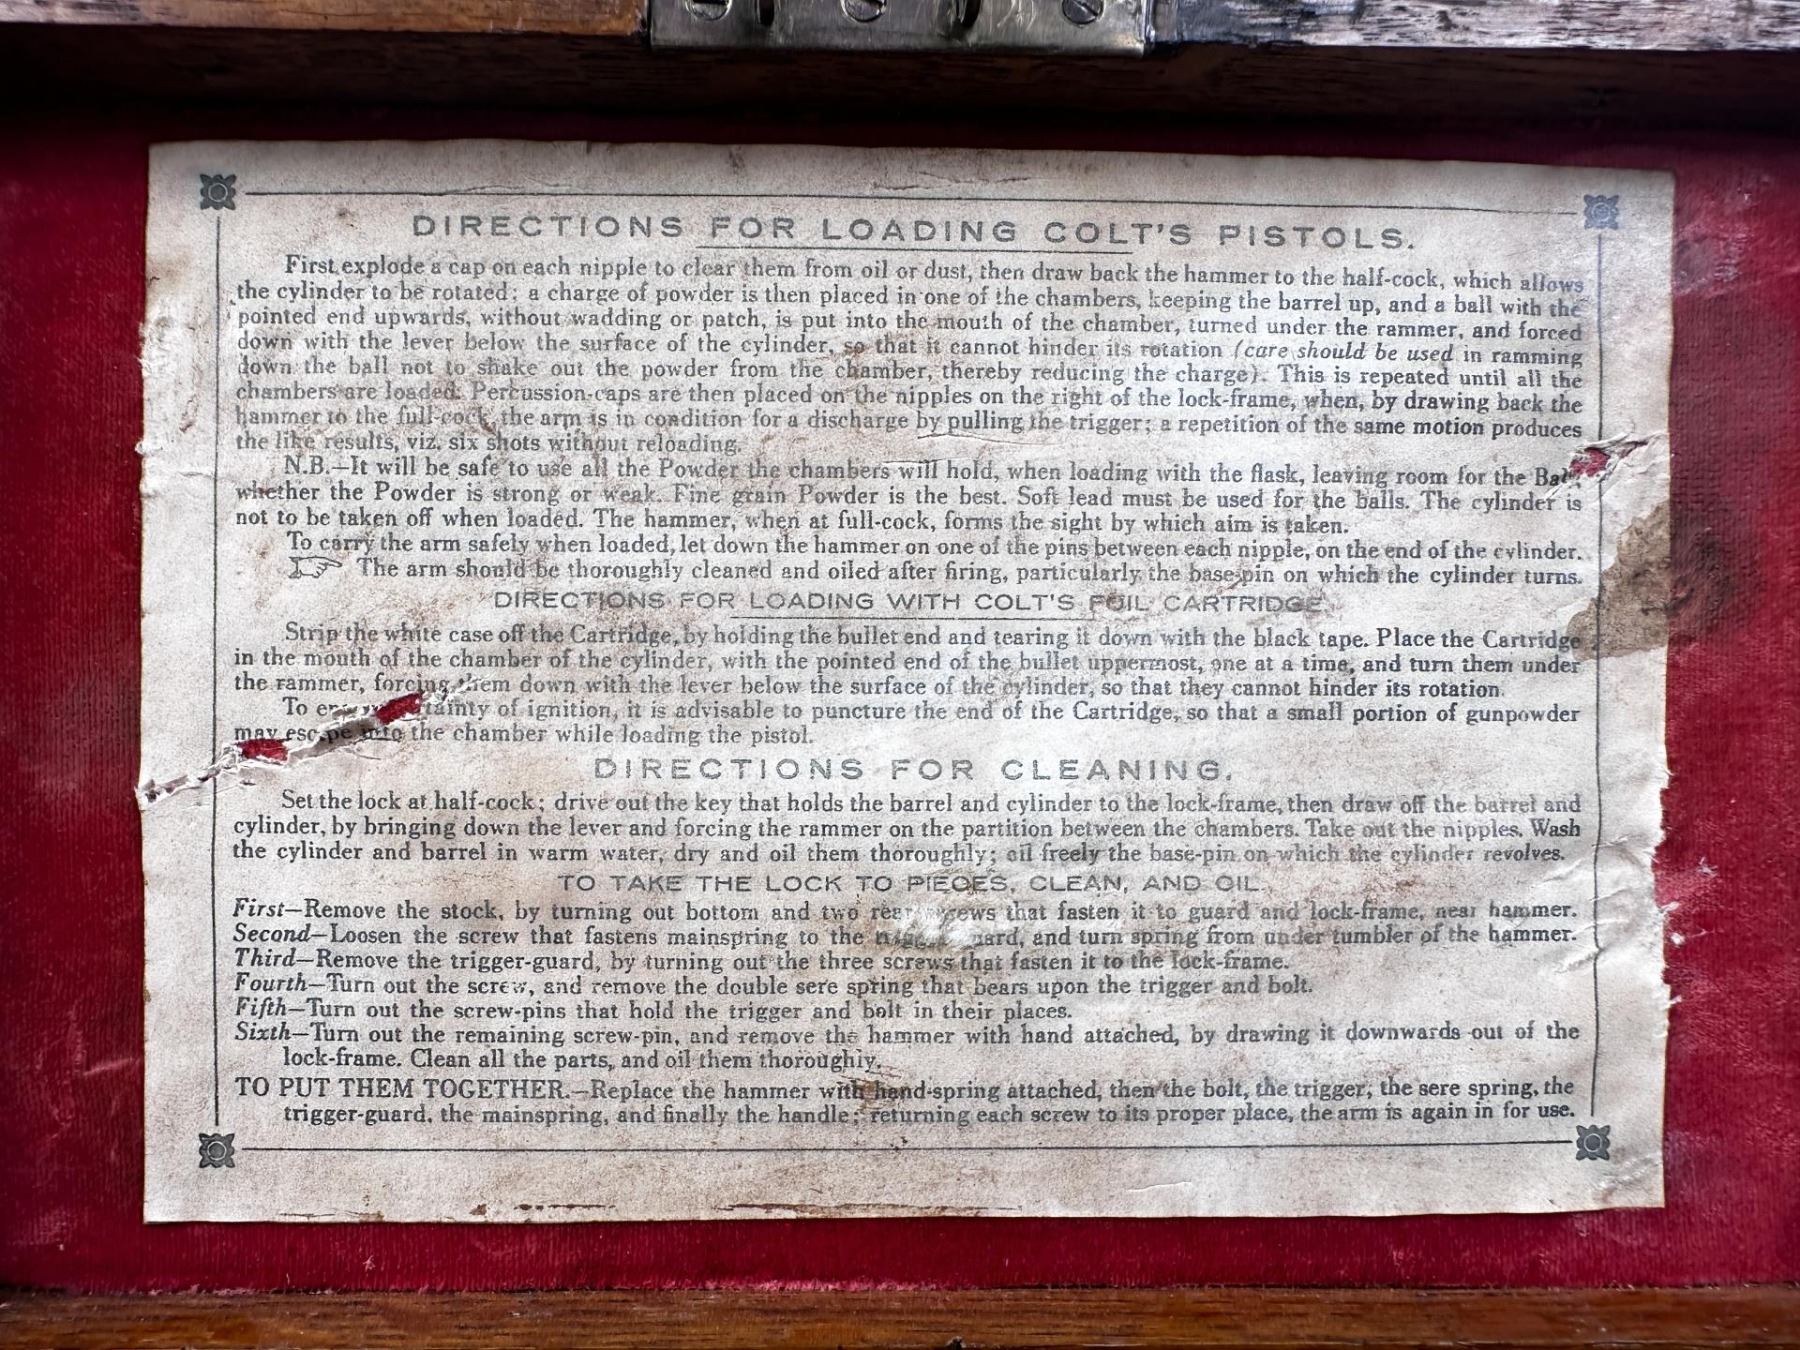 DIRECTIONS FOR LOADING COLT'S PISTOLS.
First explode a cap on each nipple to clear them from oil or dust, then draw back the hammer to the half-cock, which allows
the cylinder to be rotated; a charge of powder is then placed in one of the chambers, keeping the barrel up, and a ball with the
pointed end upwards, without wadding or patch, is put into the mouth of the chamber, turned under the rammer, and forced
down with the lever below the surface of the cylinder, so that it cannot hinder its rotation (care should be used in ramming
down the ball not to shake out the powder from the chamber, thereby reducing the charge). This is repeated until all the
chambers are loaded. Percussion-caps are then placed on the nipples on the right of the lock-frame, when, by drawing back the
hammer to the full-cock, the arm is in condition for a discharge by pulling the trigger; a repetition of the same motion produces
the like results, viz. six shots without reloading.
N.B.—It will be safe to use all the Powder the chambers will hold, when loading with the flask, leaving room for the
whether the Powder is strong or weak. Fine grain Powder is the best. Soft lead must be used for the balls. The cylinder is
not to be taken off when loaded. The hammer, when at full-cock, forms the sight by which aim is taken.
To carry the arm safely when loaded, let down the hammer on one of the pins between each nipple, on the end of the cylinder.
The arm should be thoroughly cleaned and oiled after firing, particularly the base-pin on which the cylinder turns.
DIRECTIONS FOR LOADING WITH COLT'S FOIL CARTRIDGE.
Strip the white case off the Cartridge, by holding the bullet end and tearing it down with the black tape. Place the Cartridge
in the mouth of the chamber of the cylinder, with the pointed end of the bullet uppermost, one at a time, and turn them under
the rammer, forcing them down with the lever below the surface of the cylinder, so that they cannot hinder its rotation.
To of ignition, it is advisable to puncture the end of the Cartridge, so that a small portion of gunpowder
may escape into the chamber while loading the pistol.
DIRECTIONS FOR CLEANING.
Set the lock at half-cock; drive out the key that holds the barrel and cylinder to the lock-frame, then draw off the barrel and
cylinder, by bringing down the lever and forcing the rammer on the partition between the chambers. Take out the nipples. Wash
the cylinder and barrel in warm water, dry and oil them thoroughly; oil freely the base-pin on which the cylinder revolves.
TO TAKE THE LOCK TO PIECES, CLEAN, AND OIL.
First—Remove the stock, by turning out bottom and two rear screws that fasten it to guard and lock-frame, near hammer.
Second—Loosen the screw that fastens mainspring to the and turn spring from under tumbler of the hammer.
Third—Remove the trigger-guard, by turning out the three screws that fasten it to the lock-frame.
Fourth—Turn out the screw, and remove the double sere spring that bears upon the trigger and bolt.
Fifth—Turn out the screw-pins that hold the trigger and bolt in their places.
Sixth—Turn out the remaining screw-pin, and remove the hammer with hand attached, by drawing it downwards out of the
lock-frame. Clean all the parts, and oil them thoroughly.
TO PUT THEM TOGETHER.—Replace the hammer with hand-spring attached, then the bolt, the trigger, the sere spring, the
trigger-guard, the mainspring, and finally the handle; returning each screw to its proper place, the arm is again in for use.